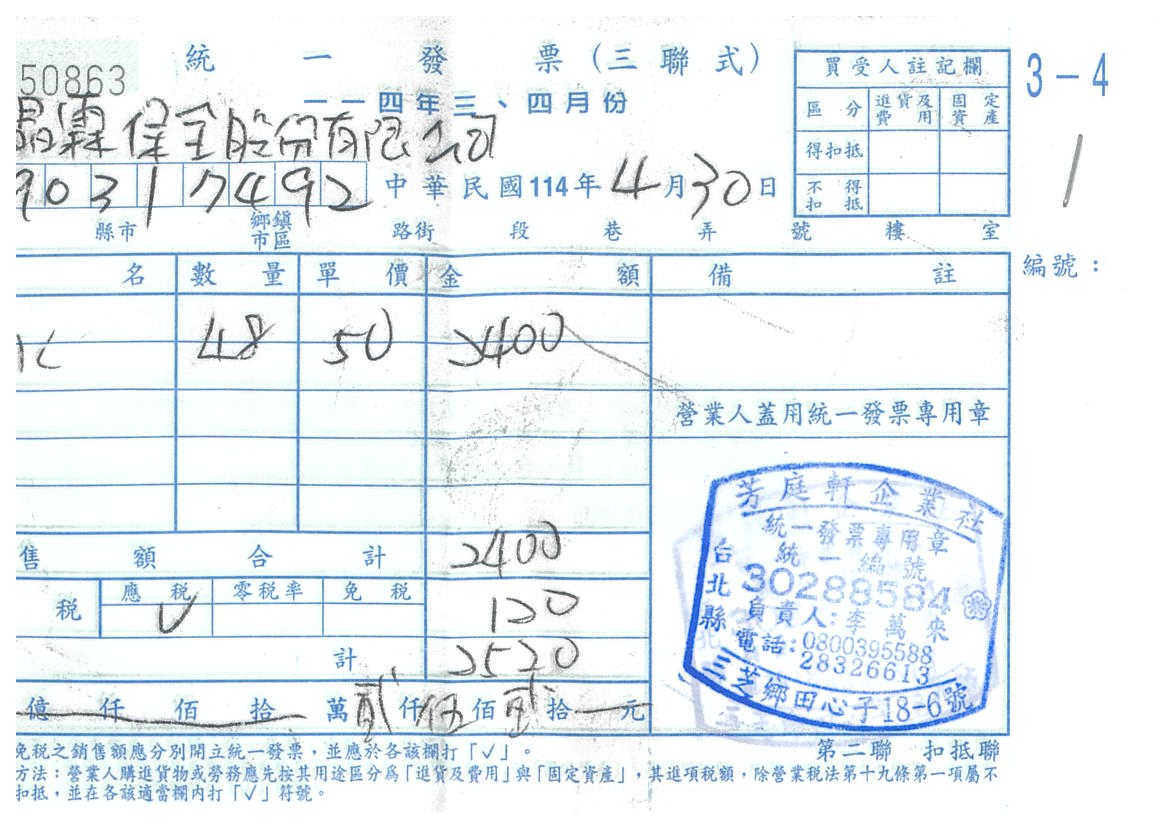 50863
統一發票(三聯式)
一一四年三、四月份
3-4
霖保全股份有限公司
9 0 3 1 7 4 9 2
中華民國114年4月30日
縣市 鄉鎮市區 路街 段 巷 弄 號 樓 室
買受人註記欄
區分 進貨及費用 固定資產
得扣抵
不得扣抵
編號:
名 數量 單價 金額 備註
48 50 2400
營業人蓋用統一發票專用章
售額合計 2400
稅 應稅 零稅率 免稅 120
V
計 2520
億 仟 佰 拾 萬 貳 仟 伍 佰 貳 拾 元
芳庭軒企業社
統一發票專用章
統一編號
30288584
負責人:李萬來
電話:0800395588
28326613
台北縣
三芝鄉田心子18-6號
第二聯 扣抵聯
免稅之銷售額應分別開立統一發票,並應於各該欄打「✓」。
方法:營業人購進貨物或勞務應先按其用途區分為「進貨及費用」與「固定資產」,其進項稅額,除營業稅法第十九條第一項屬不
扣抵,並在各該適當欄內打「✓」符號。